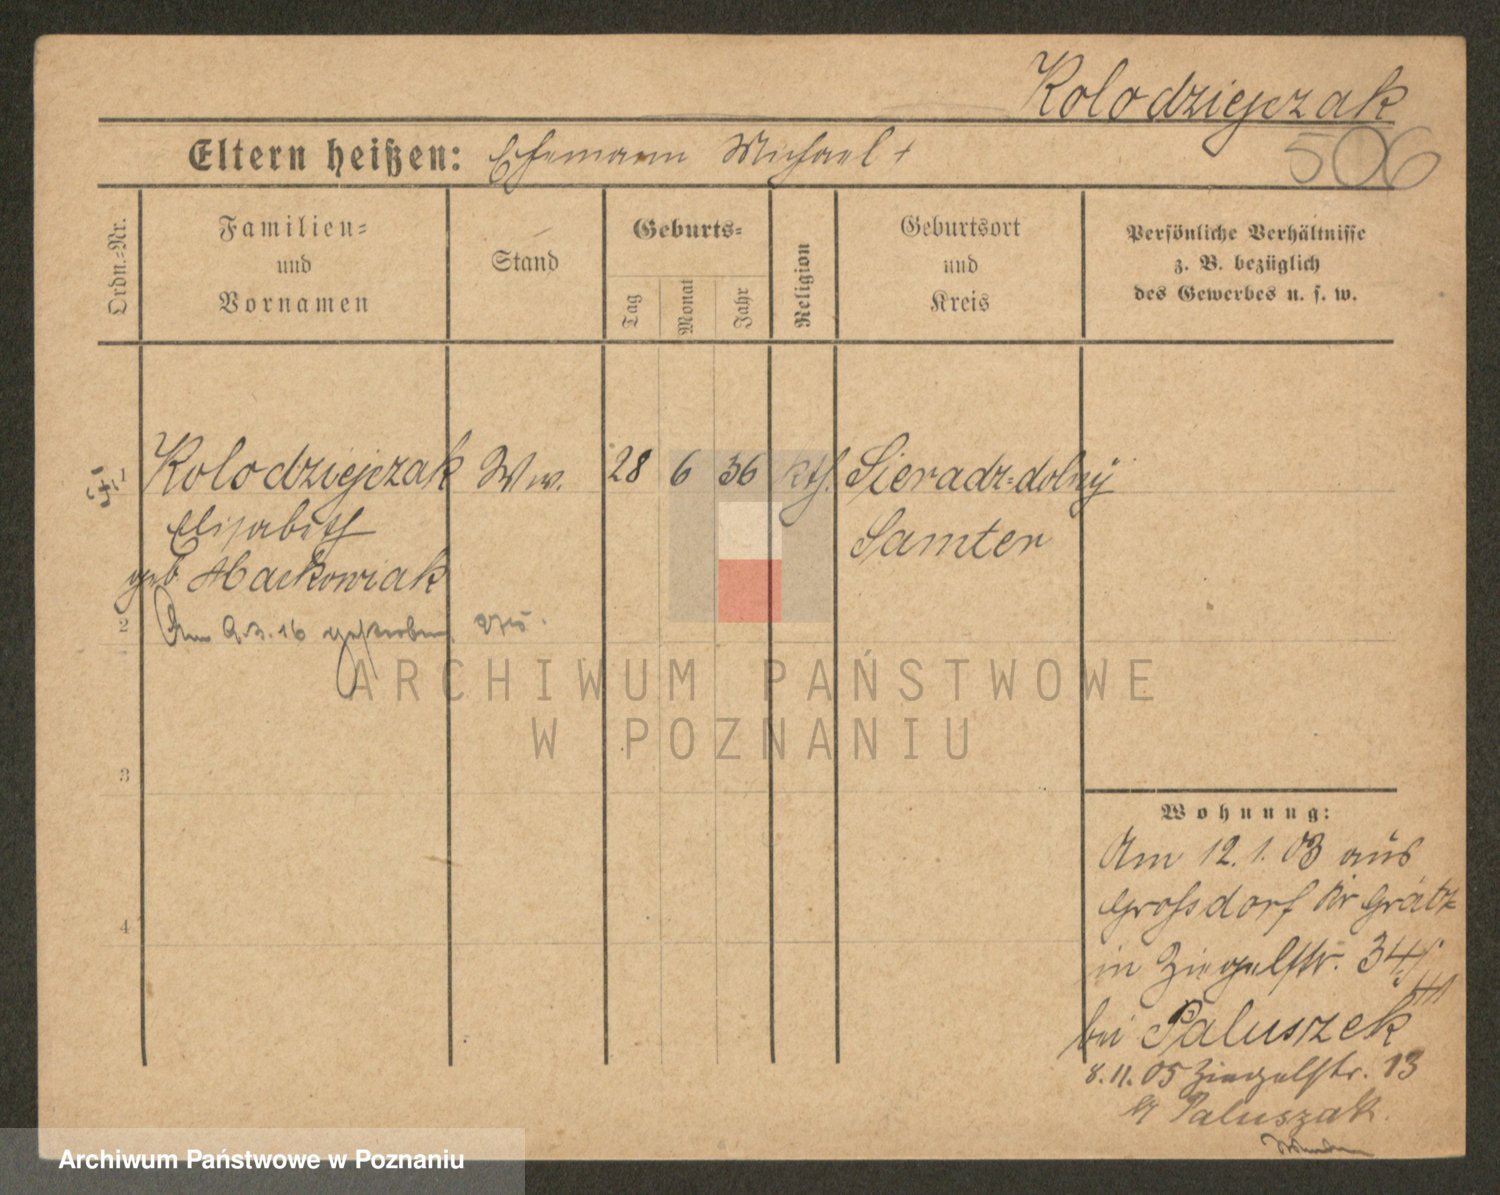 Kolodziejczak
506
Eltern heißen: Ehemann Michael †
Ordn.=Nr.
Familien=
und
Vornamen
Stand
Geburts=
Tag
Monat
Jahr
Religion
Geburtsort
und
Kreis
Persönliche Verhältnisse
z. B. bezüglich
des Gewerbes u. s. w.
1 Kolodziejczak Ww. 28 6 36 kth. Sieradz=dolny
Elisabeth Samter
geb Mackowiak
2 Am 9.3.16 gestorben
ARCHIWUM PAŃSTWOWE
W POZNANIU
3
4
Wohnung:
Am 12.1.03 aus
Grossdorf Kr Grätz
in Ziegelstr. 34
bei Paluszek
8.11.05 Ziegelstr. 13
Paluszak
Archiwum Państwowe w Poznaniu